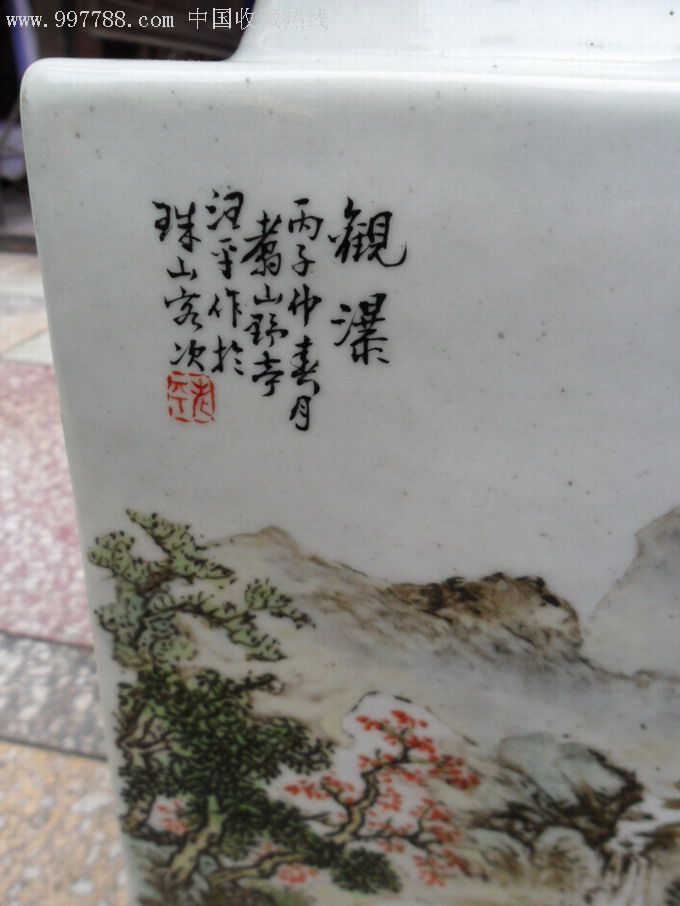 www.997788.com 中国收藏热线
觀瀑
丙子仲春月
翥山野亭
汪平作於
珠山客次